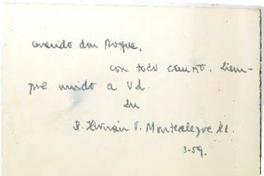 Querido don Roque,
con todo cariño. Siem-
pre unido a Vd.
Su
P. Hernán V. Montealegre Kl.
3-59.